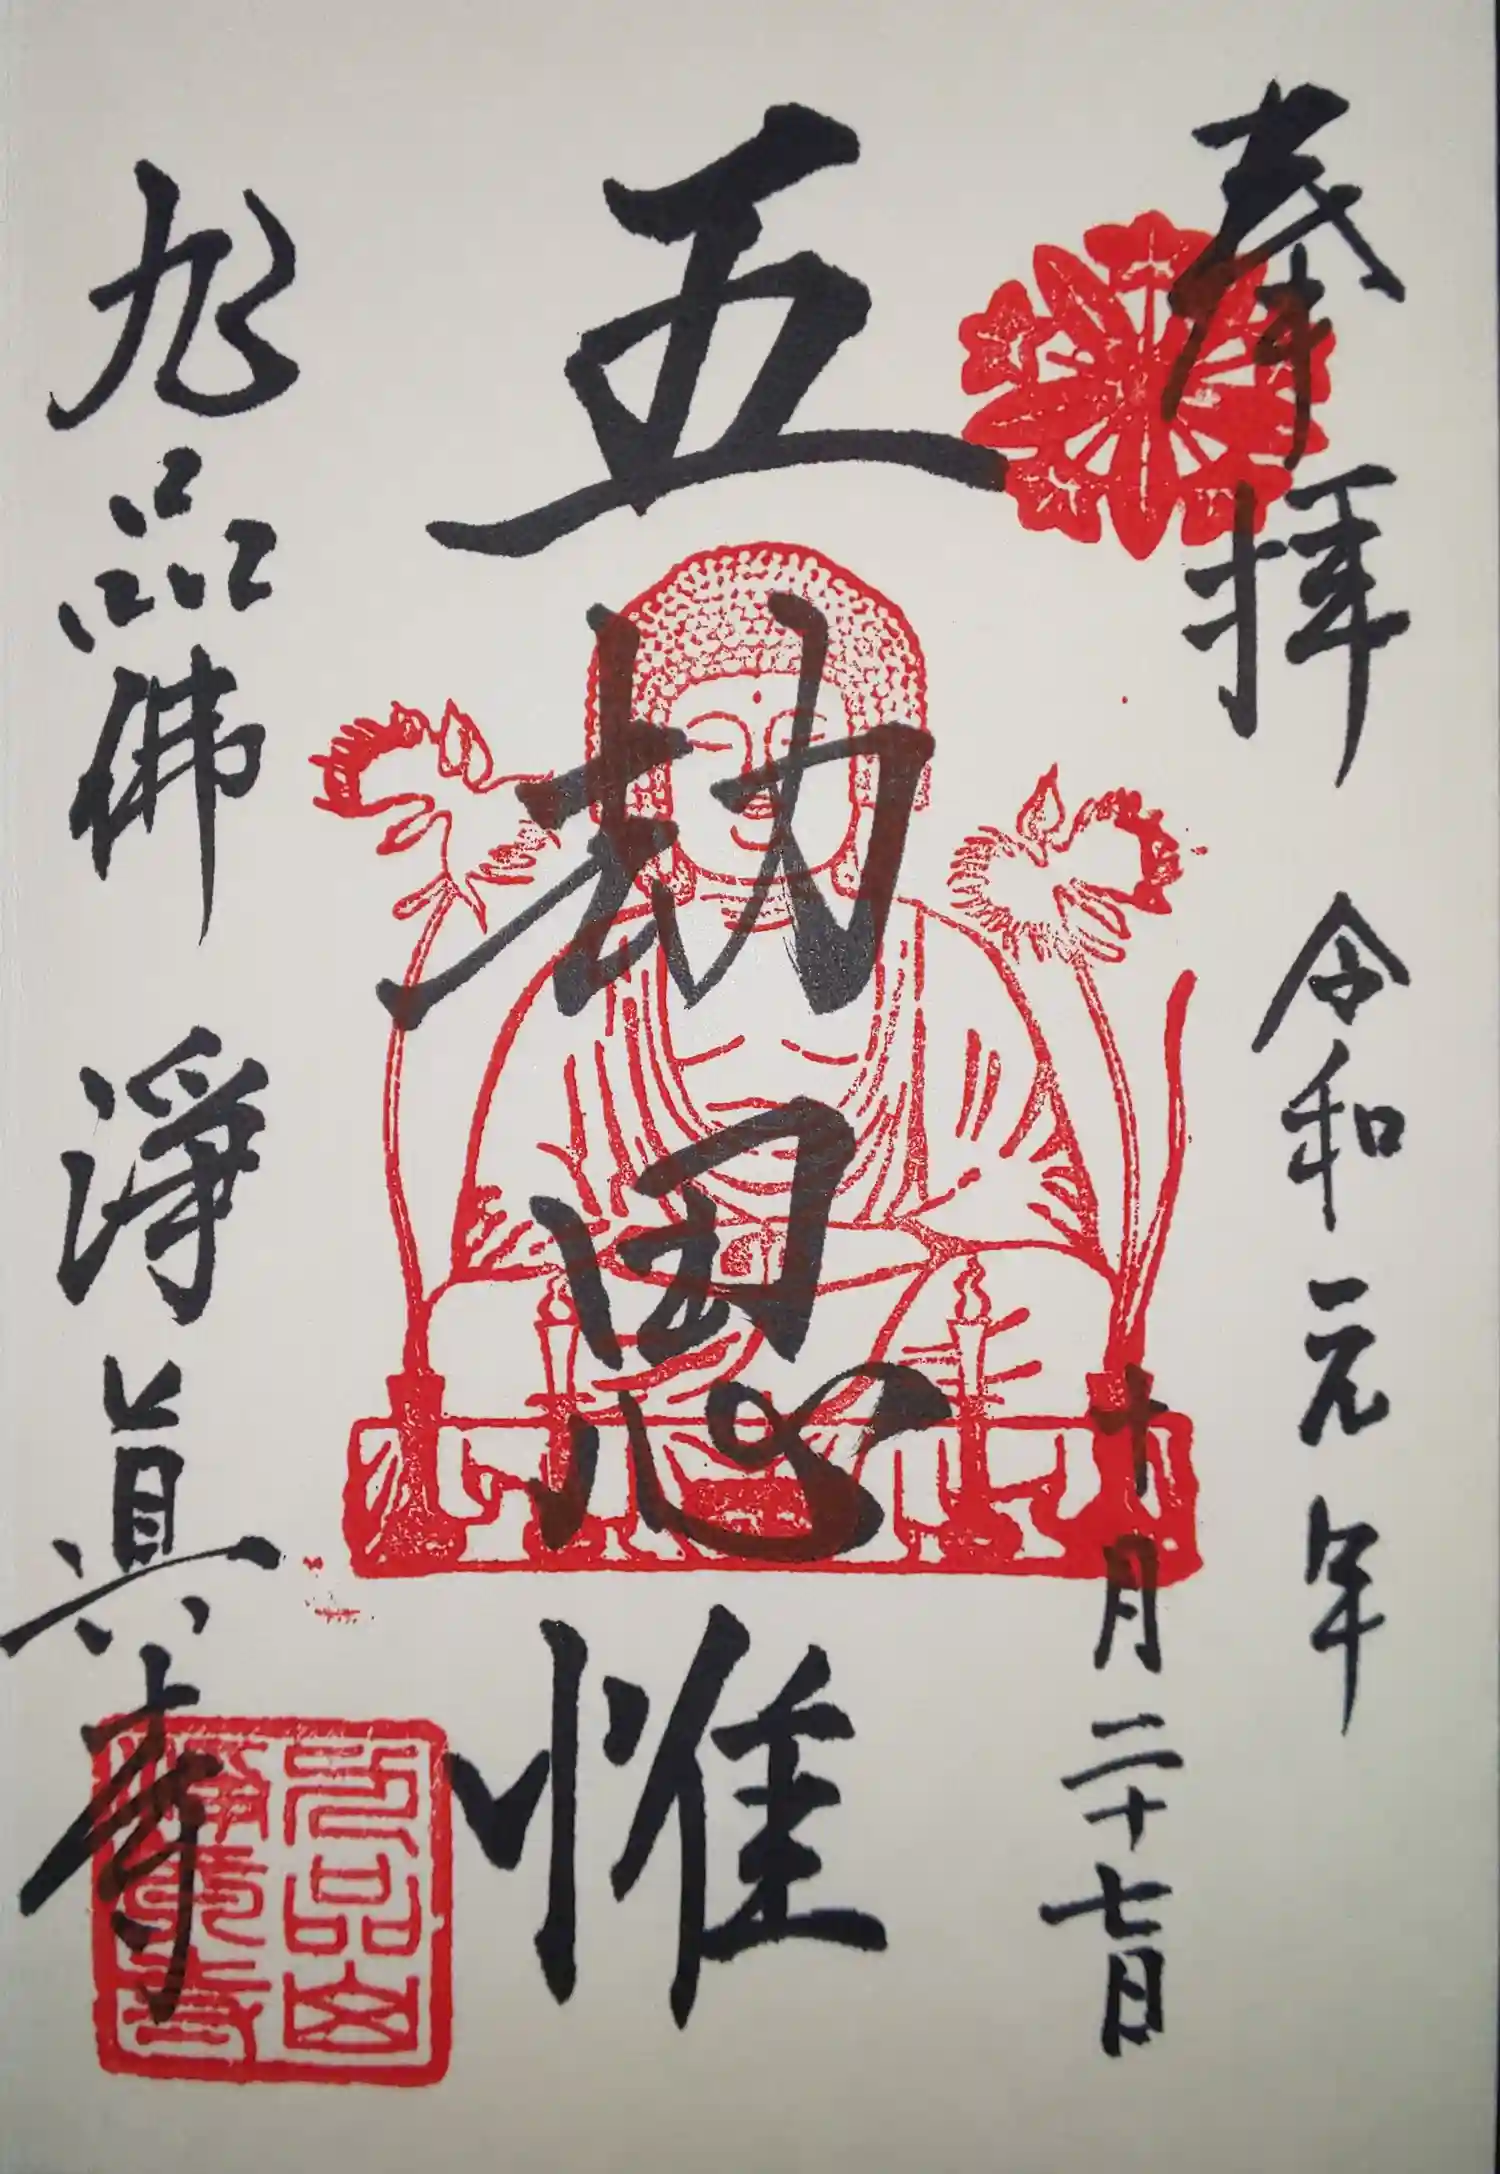 奉拝
令和元年
十月二十七日
五劫思惟
九品佛 淨眞寺
九品山
淨眞寺